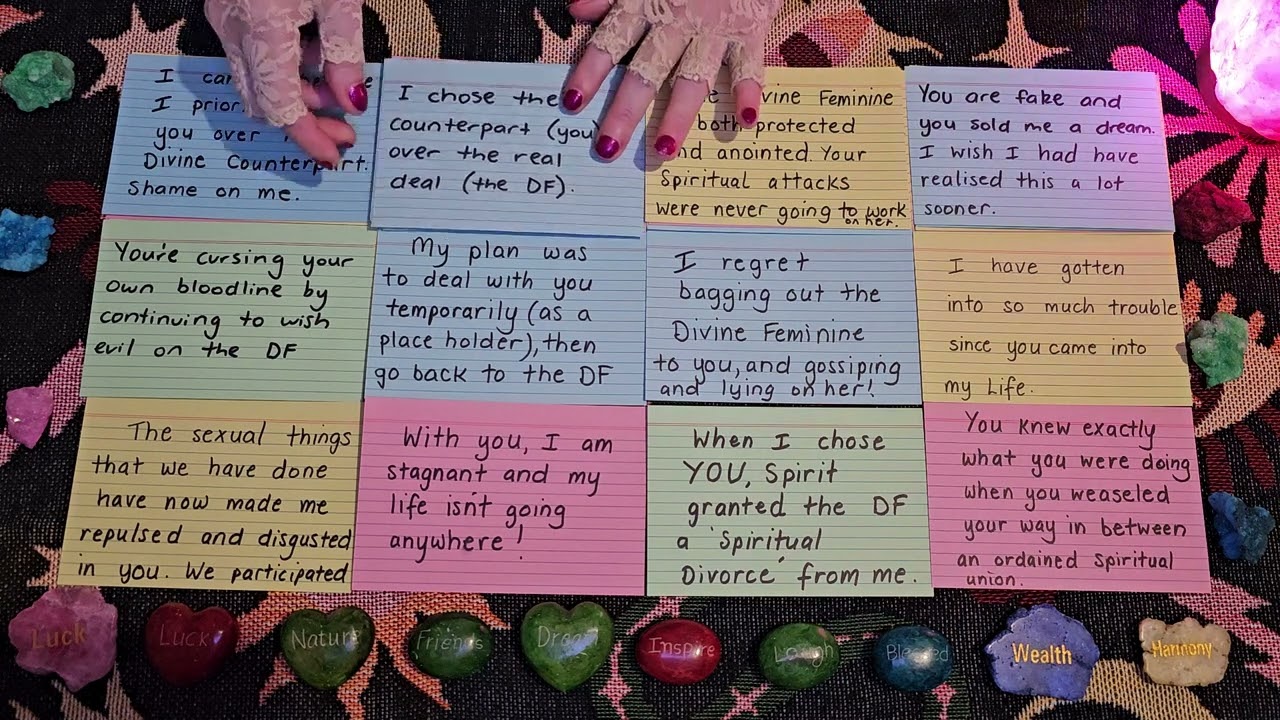 I
I
you over
Divine Counterpart.
shame on me.
I chose the
counterpart (you)
over the real
deal (the DF).
vine Feminine
both protected
and anointed. Your
Spiritual attacks
were never going to work
on her.
You are fake and
you sold me a dream.
I wish I had have
realised this a lot
sooner.
You're cursing your
own bloodline by
continuing to wish
evil on the DF
My plan was
to deal with you
temporarily (as a
place holder), then
go back to the DF
I regret
bagging out the
Divine Feminine
to you, and gossiping
and lying on her!
I have gotten
into so much trouble
since you came into
my Life.
The sexual things
that we have done
have now made me
repulsed and disgusted
in you. We participated
With you, I am
stagnant and my
life isn't going
anywhere!
When I chose
YOU, Spirit
granted the DF
a 'Spiritual
Divorce' from me.
You knew exactly
what you were doing
when you weaseled
your way in between
an ordained Spiritual
union.
Luck
Luck
Nature
Friends
Dream
Inspire
Laugh
Blessed
Wealth
Harmony